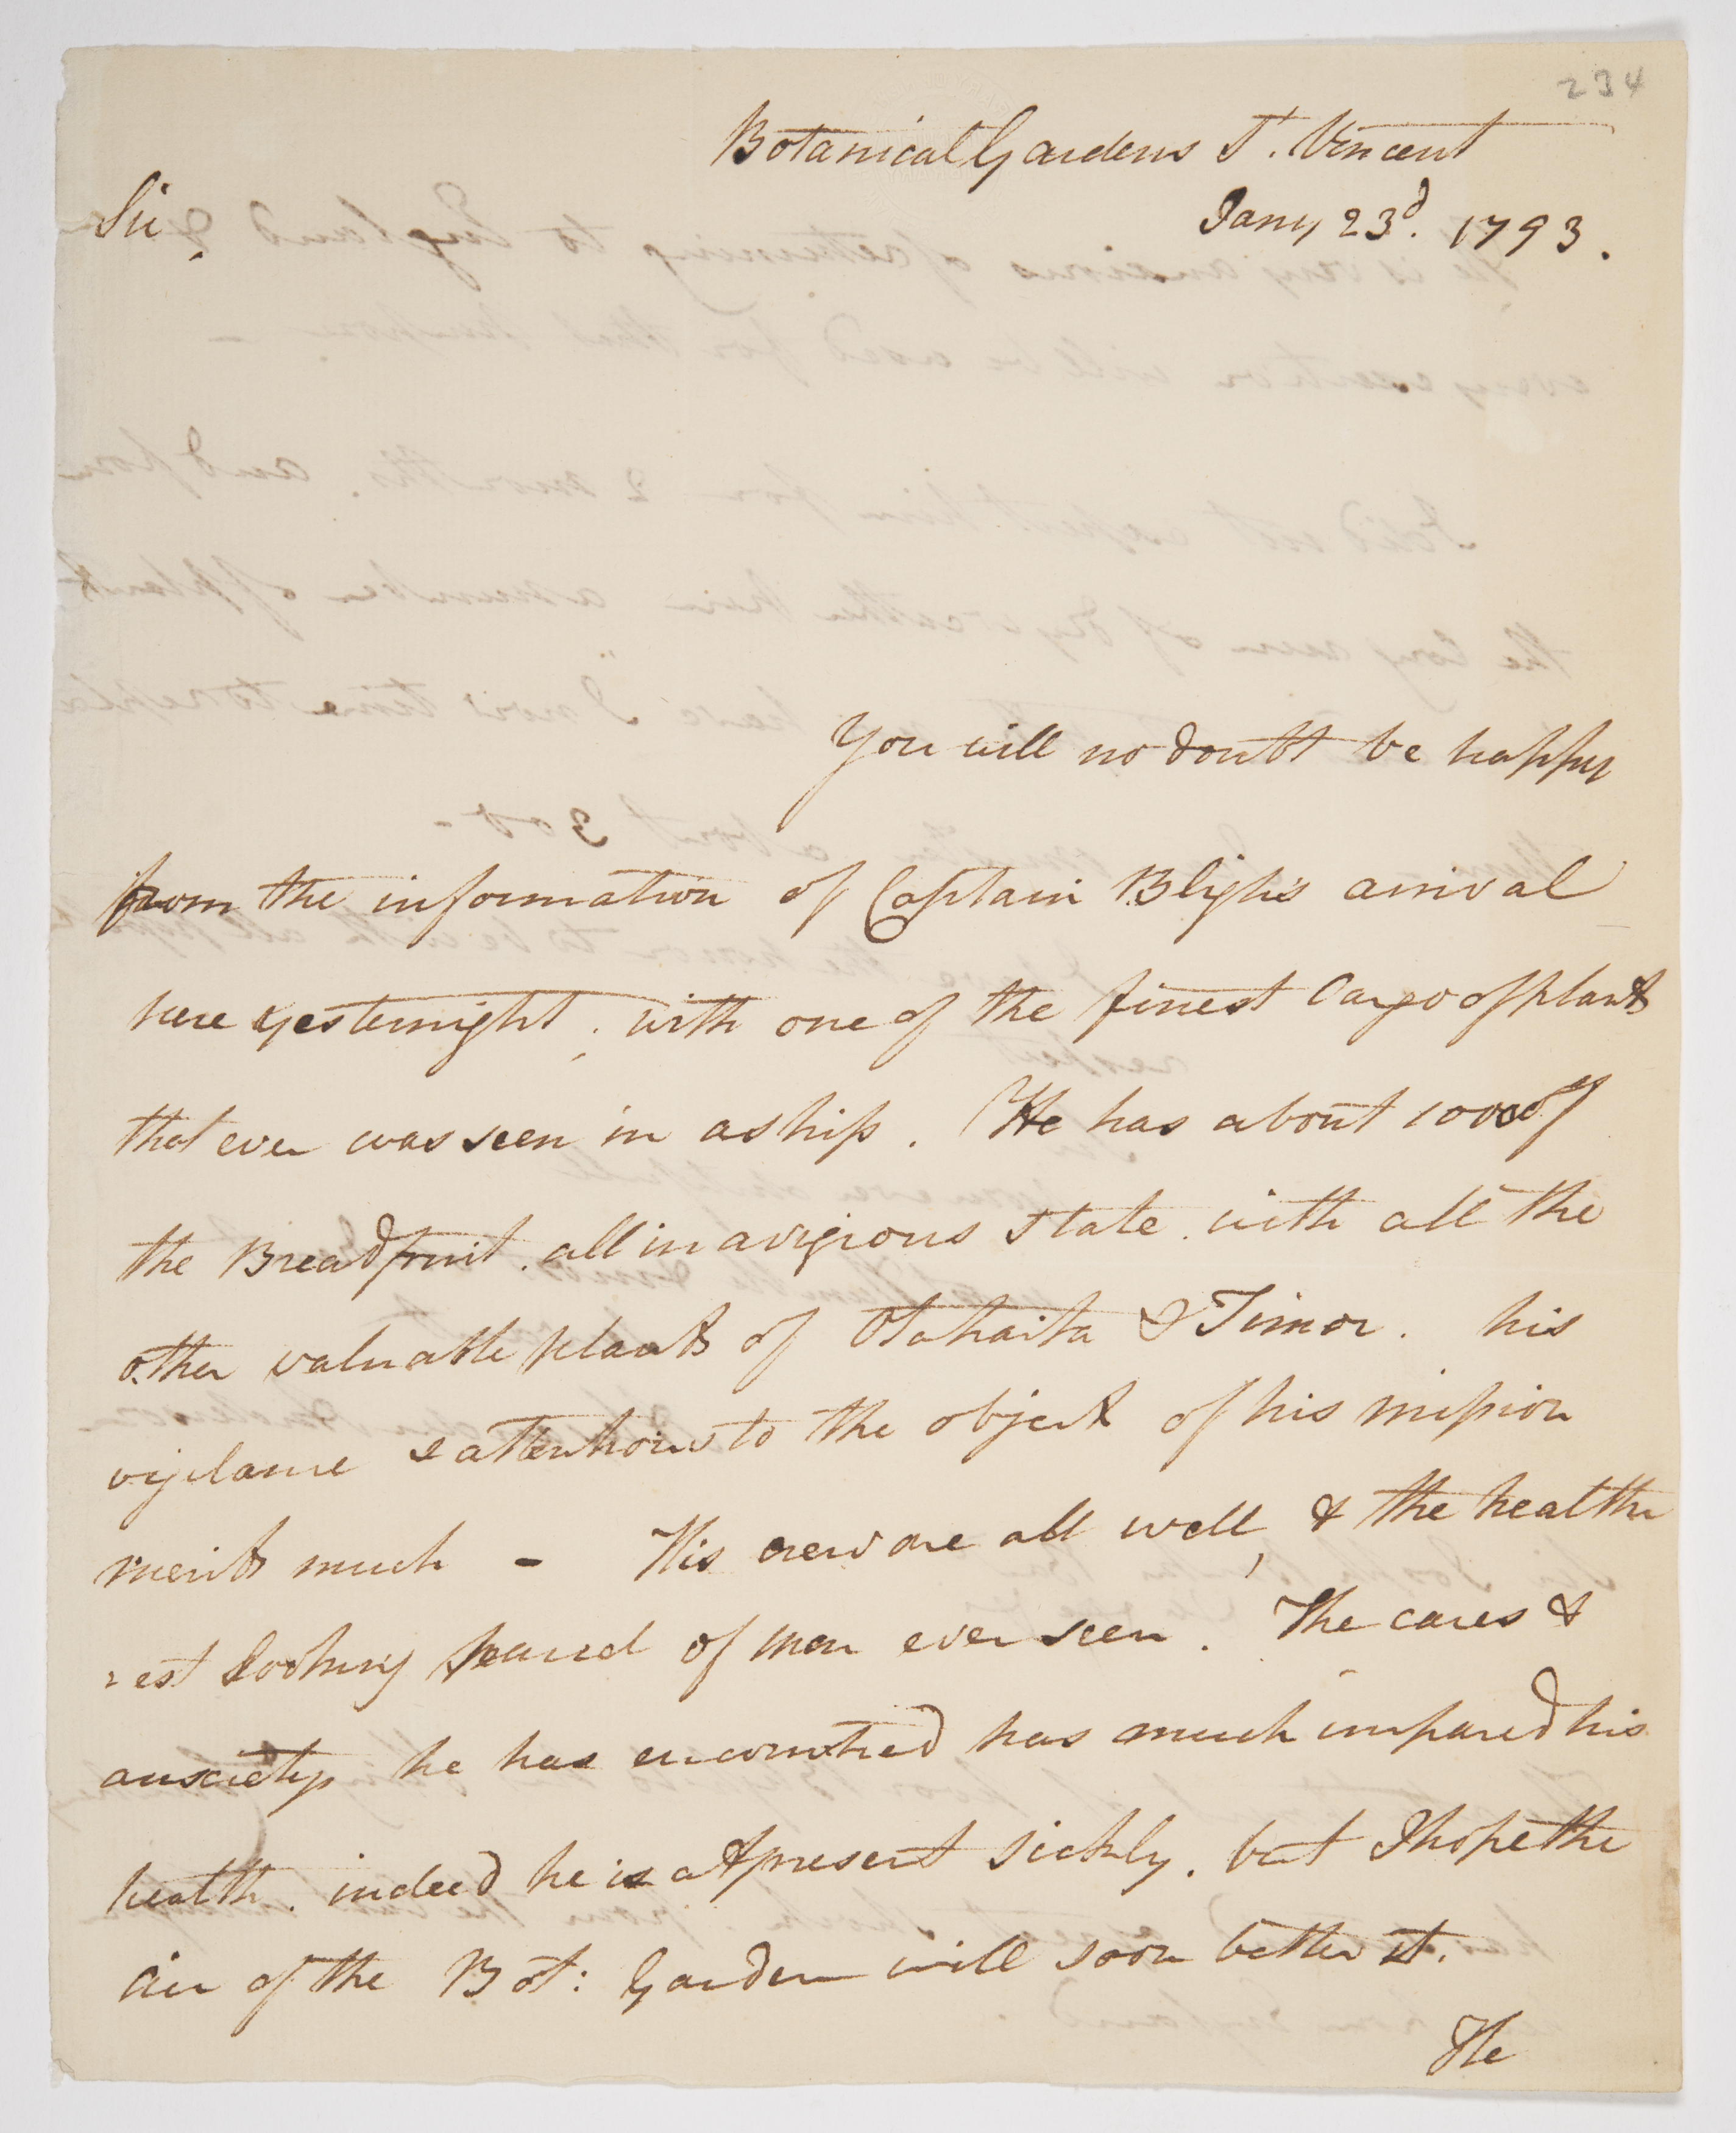 234
Botanical Gardens St. Vincent
Jany 23d. 1793.
Sir,
You will no doubt be happy
from the information of Captain Bligh's arrival
here yesternight, with one of the finest Cargo of plants
that ever was seen in a ship. He has about 1000 of
the Breadfruit. all in a vigrous state. with all the
other valuable plants of Otahaita & Timor. his
vigilance & attentions to the object of his mission
merits much - His crew are all well, & the healthi
est looking parcel of men ever seen. The cares &
anxiety he has encountred has much impared his
health. indeed he is at present sickly. but I hope the
air of the Bot: Garden will soon better it.
He